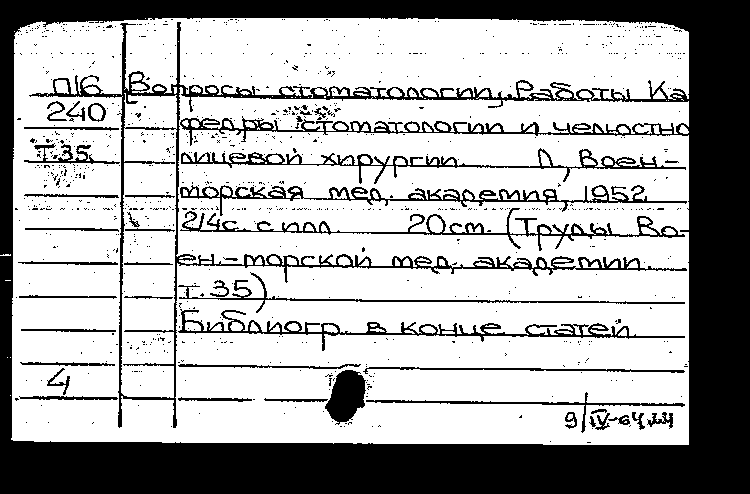 П16 Вопросы стоматологии, Работы Ка
240 федры стоматологии и челюстно
Т.35. лицевой хирургии. Л, Воен-
морская мед. академия, 1952
214с. с илл. 20см. (Труды Во-
ен.-морской мед. академии.
т.35).
Библиогр. в конце статей
4
9/IV-64